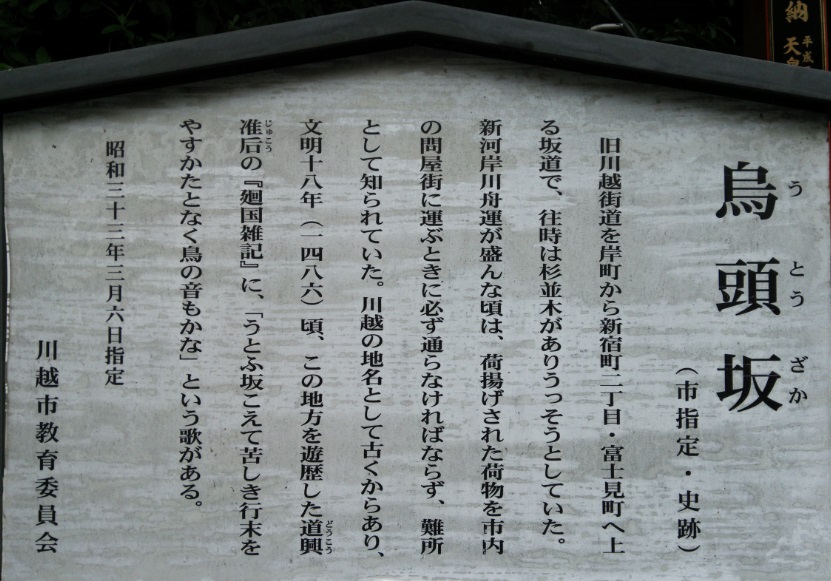 烏頭坂
うとうざか
（市指定・史跡）
旧川越街道を岸町から新宿町二丁目・富士見町へ上
る坂道で、往時は杉並木がありうっそうとしていた。
新河岸川舟運が盛んな頃は、荷揚げされた荷物を市内
の問屋街に運ぶときに必ず通らなければならず、難所
として知られていた。川越の地名として古くからあり、
文明十八年（一四八六）頃、この地方を遊歴した道興
どうこう
准后の『廻国雑記』に、「うとふ坂こえて苦しき行末を
じゅこう
やすかたとなく鳥の音もかな」という歌がある。
昭和三十三年三月六日指定
川越市教育委員会
納
平成
天皇